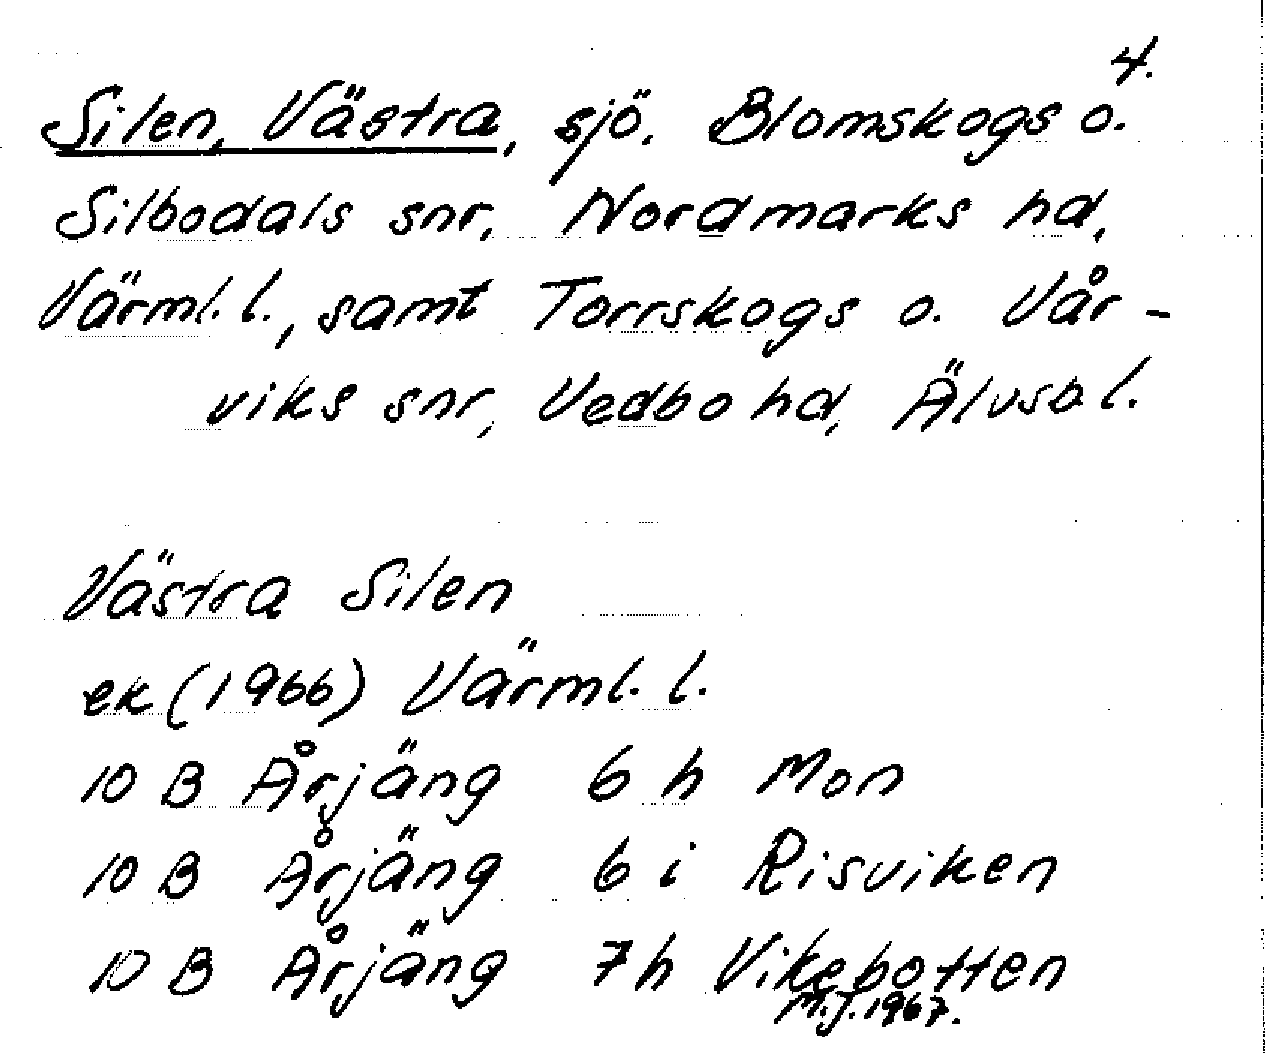 4.
Silen, Västra, sjö. Blomskogs o.
Silbodals snr, Nordmarks hd,
Värml. l., samt Torrskogs o. Vår-
viks snr, Vedbo hd, Älvsb. l.
Västra Silen
ek (1966) Värml. l.
10 B Årjäng 6 h Mon
10 B Årjäng 6 i Risviken
10 B Årjäng 7 h Vikebotten
M.J. 1967.